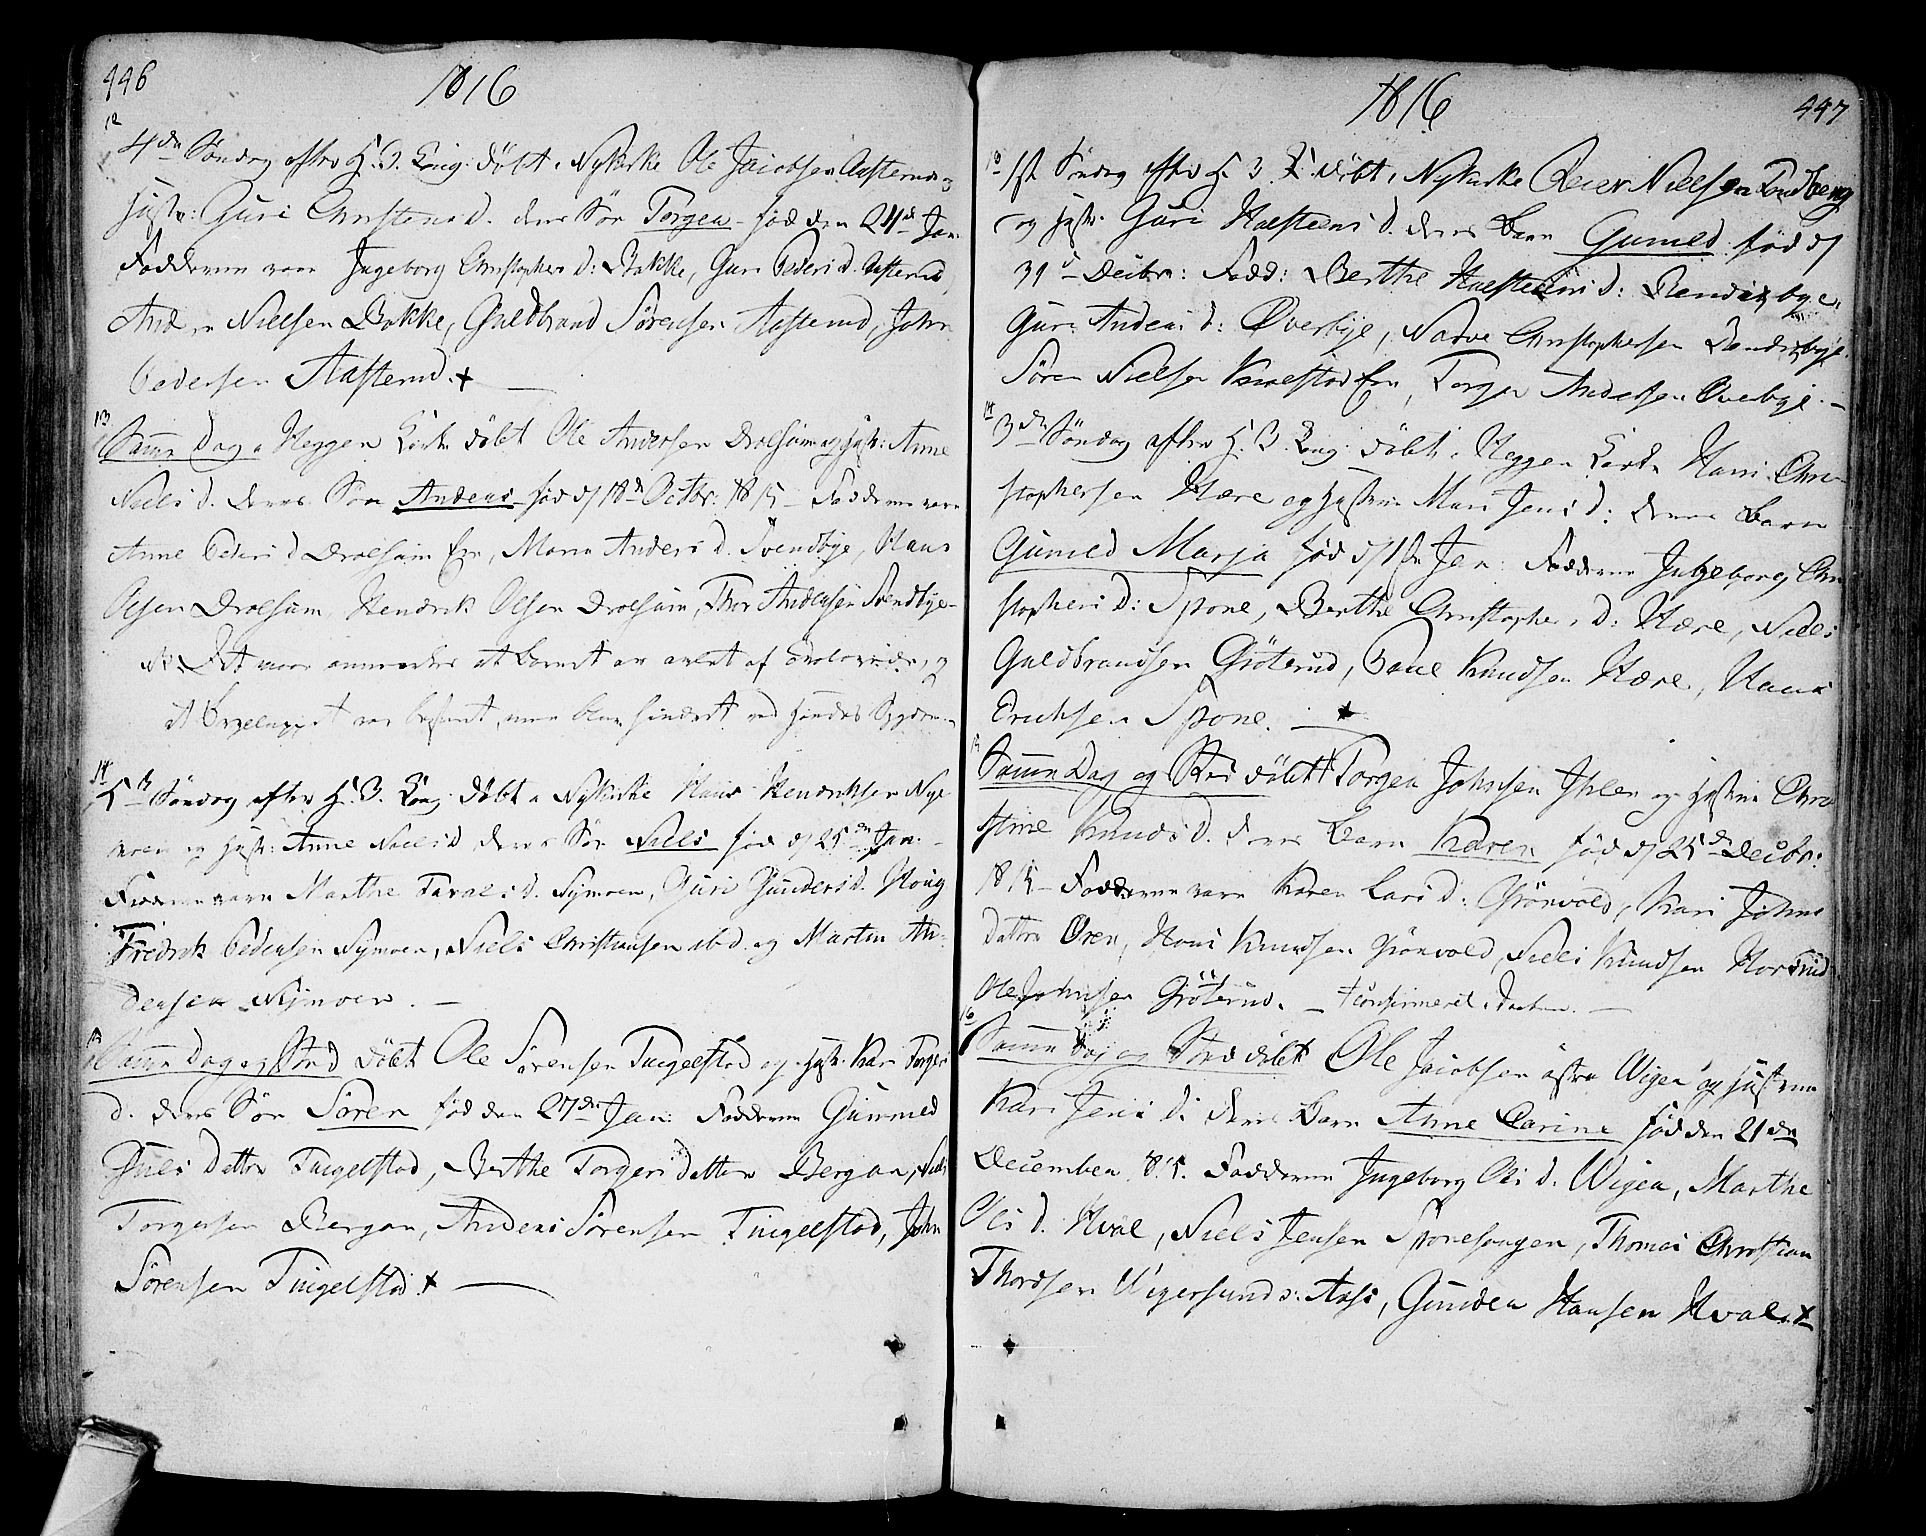 446
1816
12
4de Søndag efter H. 3. Kong: døbt i Nykirke Ole Jacobsen Aasterud og
Hustr: Guri Christensd. deres Søn Torger fød den 24de Jan.
Fadderne vare Ingeborg Christophersd: Bakke, Guri Pedersd. Aasterud
Anders Nielsen Bakke, Guldbrand Sörensen Aasterud, John
Pedersen Aasterud. +
13
Samme Dag i Heggen Kirke døbt Ole Andersen Drolsum og Hustr: Anne
Nielsd. deres Søn Anders fød d 18de Octbr: 1815 – Fadderne vare
Anne Pedersd Drolsum Eie, Maren Andersd. Svendbye, Hans
Olsen Drolsum, Hendrik Olsen Drolsum, Thor Andersen Svendbye
NB. Det maae anmærkes at Barnet er avlet af, og
at var bestemt, men blev hindret ved hendes Sygdom
14
5te Søndag efter H. 3. Kong. døbt i Nykirke Hans Hendriksen Nye
moen og Hustr: Anne Nielsd deres Søn Niels fød d 25de Jan: –
Fadderne vare Marthe d. Nymoen, Guri Gundersd. Houg
Fredrik Pedersen Nymoen, Niels Christiansen ibid. og Martin An-
dersen Nymoen. –
15
Samme Dag og Sted døbt Ole Sörensen Tingelstad og Hustr. Kari Torgers
d. deres Søn Sören fød den 27de Jan: Fadderne Gunnild
Juels Datter Tingelstad, Berthe Torgers Datter Bergan, Niels
Torgersen Bergan, Anders Sörensen Tingelstad, John
Sörensen Tingelstad. +
1816
447
13
1ste Søndag efter H. 3. K: døbt i Nykirke Reier Nielsen Lundberg
og Hustr. Guri Halsteensd. deres Barn Gunild fød d
31d Decbr: Fadd: Berthe Halsteensd: Rendsbye,
Guri Andersd: Overbye, Narve Christophersen Rendsbye
Sören Nielsen Knivestad Eie, Torger Andersen Overbye. –
14
3de Søndag efter H. 3. Kong. døbt i Heggen Kirke Hans Chri-
stophersen Hære og Hustrue Mari Jensd: deres Barn
Gunild Marja fød d 1ste Jan: Fadderne Ingeborg Chri
stophersd: Spone, Berthe Christophersd: Hære, Niels
Guldbrandsen Gröterud, Povel Knudsen Hære, Hans
Erichsen Spone. – +
15
Samme Dag og Sted døbt Torger Johnsen Ihlen og Hustrue Chri
stine Knudsd. deres Barn Karen fød d 25de Decbr:
1815 – Fadderne vare Karen Larsd: Grönvold, Kari Johns
datter Oren, Hans Knudsen Grönvold, Niels Knudsen Horsrud
Ole Johnsen Gröterud. – +confirmeret i –
16
Samme Dag og Sted døbt Ole Jacobsen østre Wigen og Hustrue
Kari Jensd: deres Barn Anne Carine fød den 21de
December 1815. Fadderne Ingeborg Olsd. Wigen, Marthe
Olsd. Hval, Niels Jensen Sponesongen, Thomas Christian
Thordsen Wigersunds: Aasi, Gunder Hansen Hval. +